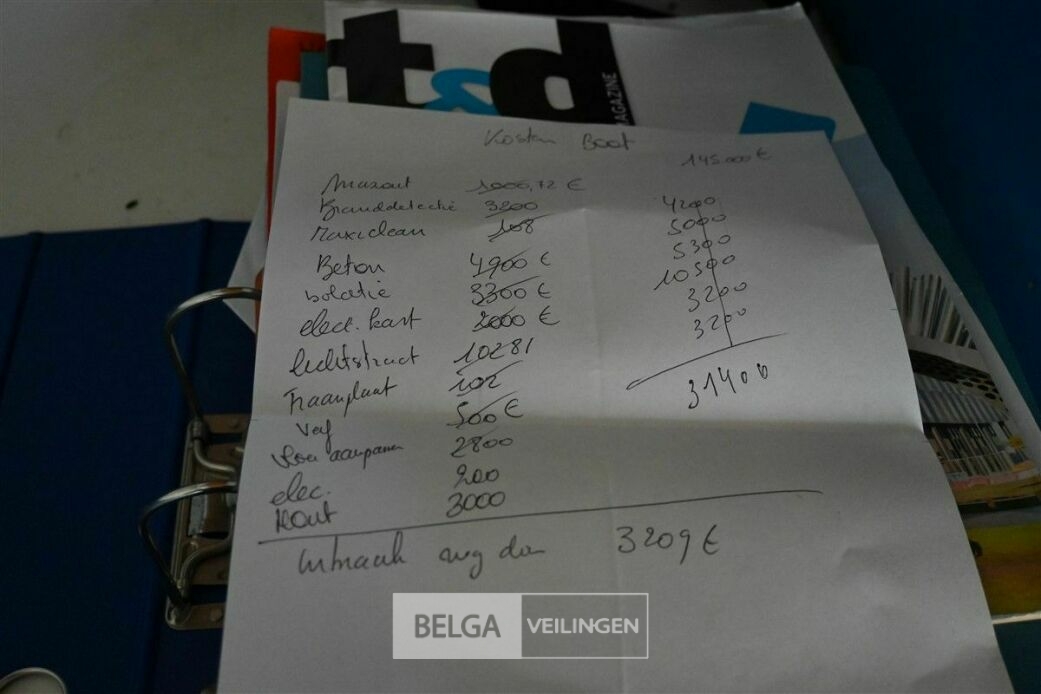 t&d
MAGAZINE
Kosten Boot
145.000 €
Mazout 1006,72 €
Branddetectie 3200
Maxiclean 108
Beton 4900 €
Isolatie 3300 €
elect. kast 2000 €
luchtstruct 10281
Fraanplaat 102
Verf 500 €
vloer aanpassen 2800
elec. 900
Hout 3000
4200
5000
5300
10500
3200
3200
31400
inbraak 3209 €
BELGA VEILINGEN